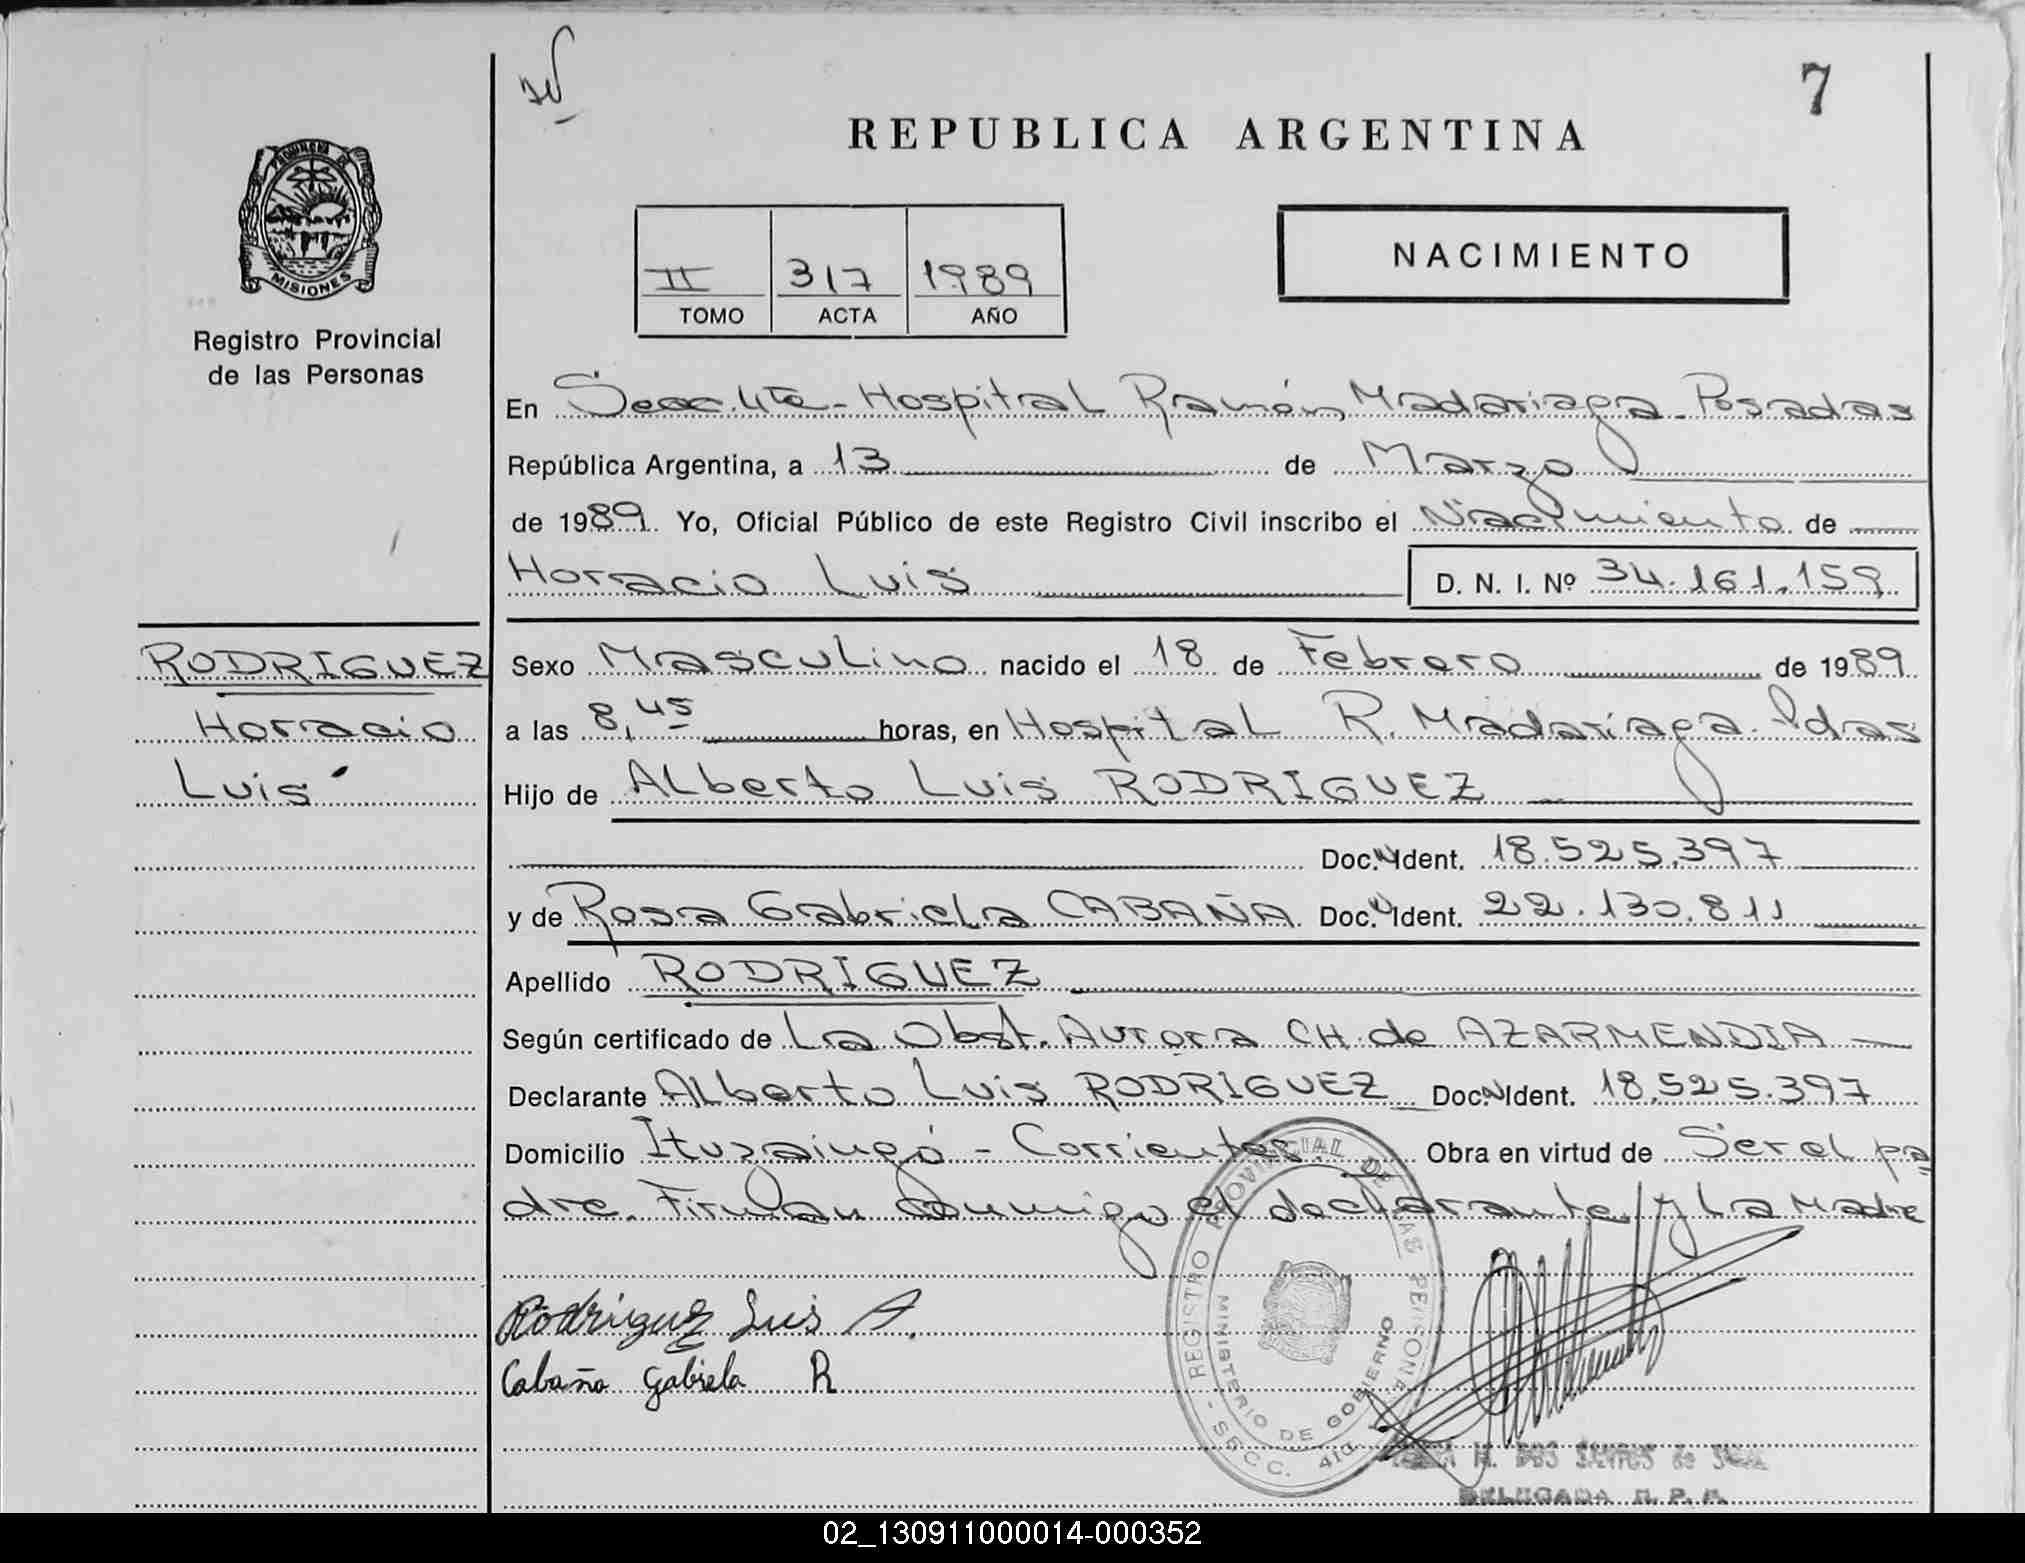 7
REPUBLICA ARGENTINA
PROVINCIA DE
MISIONES
Registro Provincial
de las Personas
NACIMIENTO
II 317 1989
TOMO ACTA AÑO
En Secc. 4ta - Hospital Ramón Madariaga - Posadas
República Argentina, a 13 de Marzo
de 1989. Yo, Oficial Público de este Registro Civil inscribo el Nacimiento de
Horacio Luis D. N. I. Nº 34.161.159
RODRIGUEZ
Horacio
Luis
Sexo Masculino nacido el 18 de Febrero de 1989
a las 8,45 horas, en Hospital R. Madariaga. Pdas
Hijo de Alberto Luis RODRIGUEZ
Doc. N Ident. 18.525.397
y de Rosa Gabriela CABAÑA Doc. N Ident. 22.130.811
Apellido RODRIGUEZ
Según certificado de La Obst. Aurora CH. de AZARMENDIA
Declarante Alberto Luis RODRIGUEZ Doc. N Ident. 18.525.397
Domicilio Ituzaingó - Corrientes Obra en virtud de Ser el pa
dre. Firman conmigo el declarante y La Madre
Rodriguez Luis A.
Cabaña Gabriela R
REGISTRO PROVINCIAL DE LAS PERSONAS
MINISTERIO DE GOBIERNO
SECC. 4ta
M. DOS SANTOS de
DELEGADA R. P. P.
02_130911000014-000352